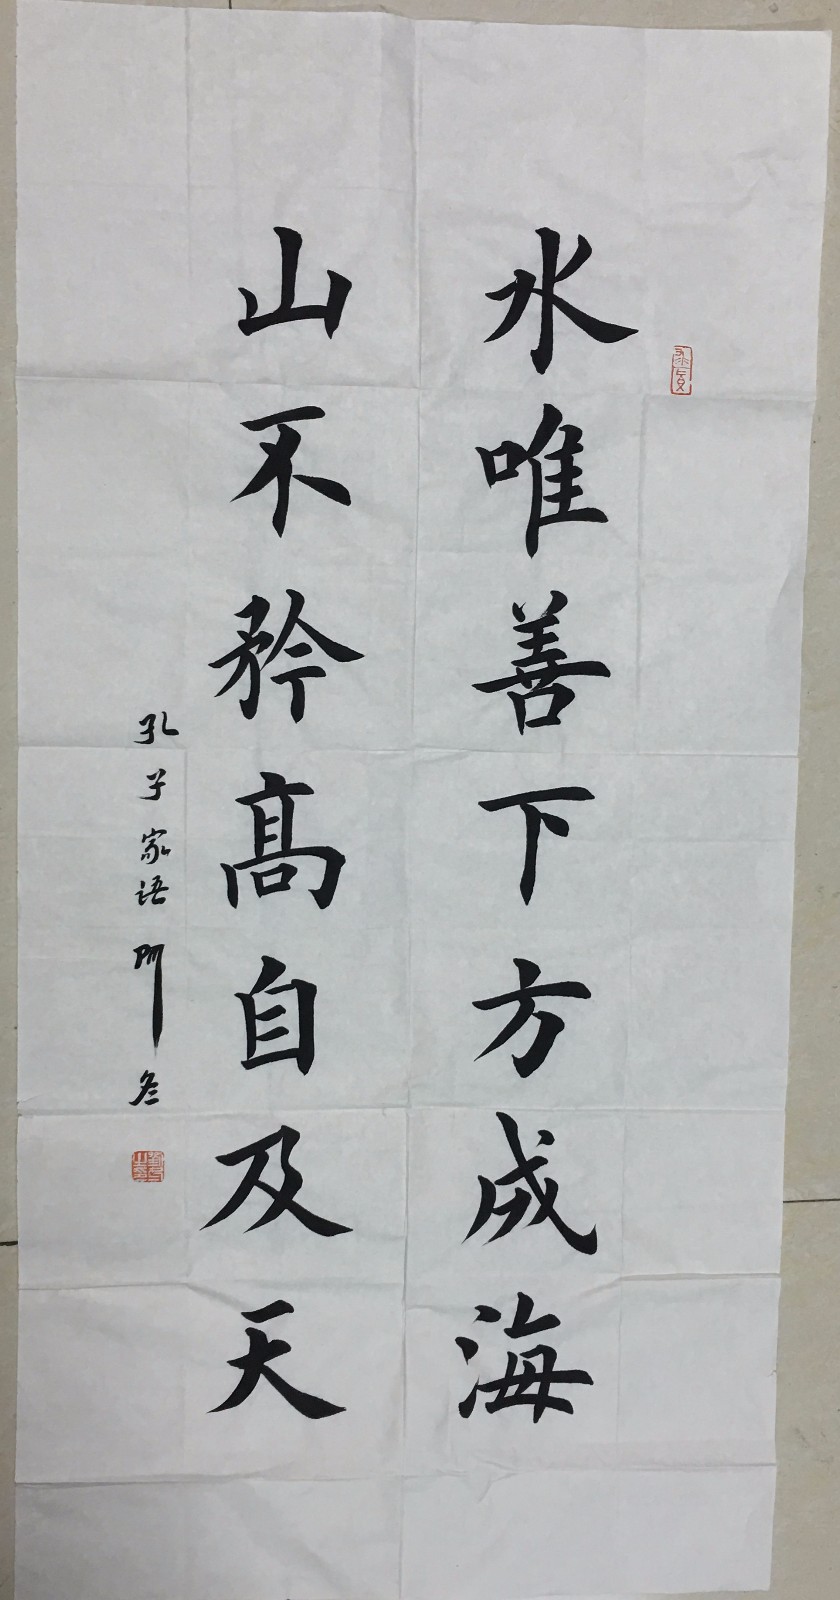 水唯善下方成海
山不矜高自及天
孔子家语 阿